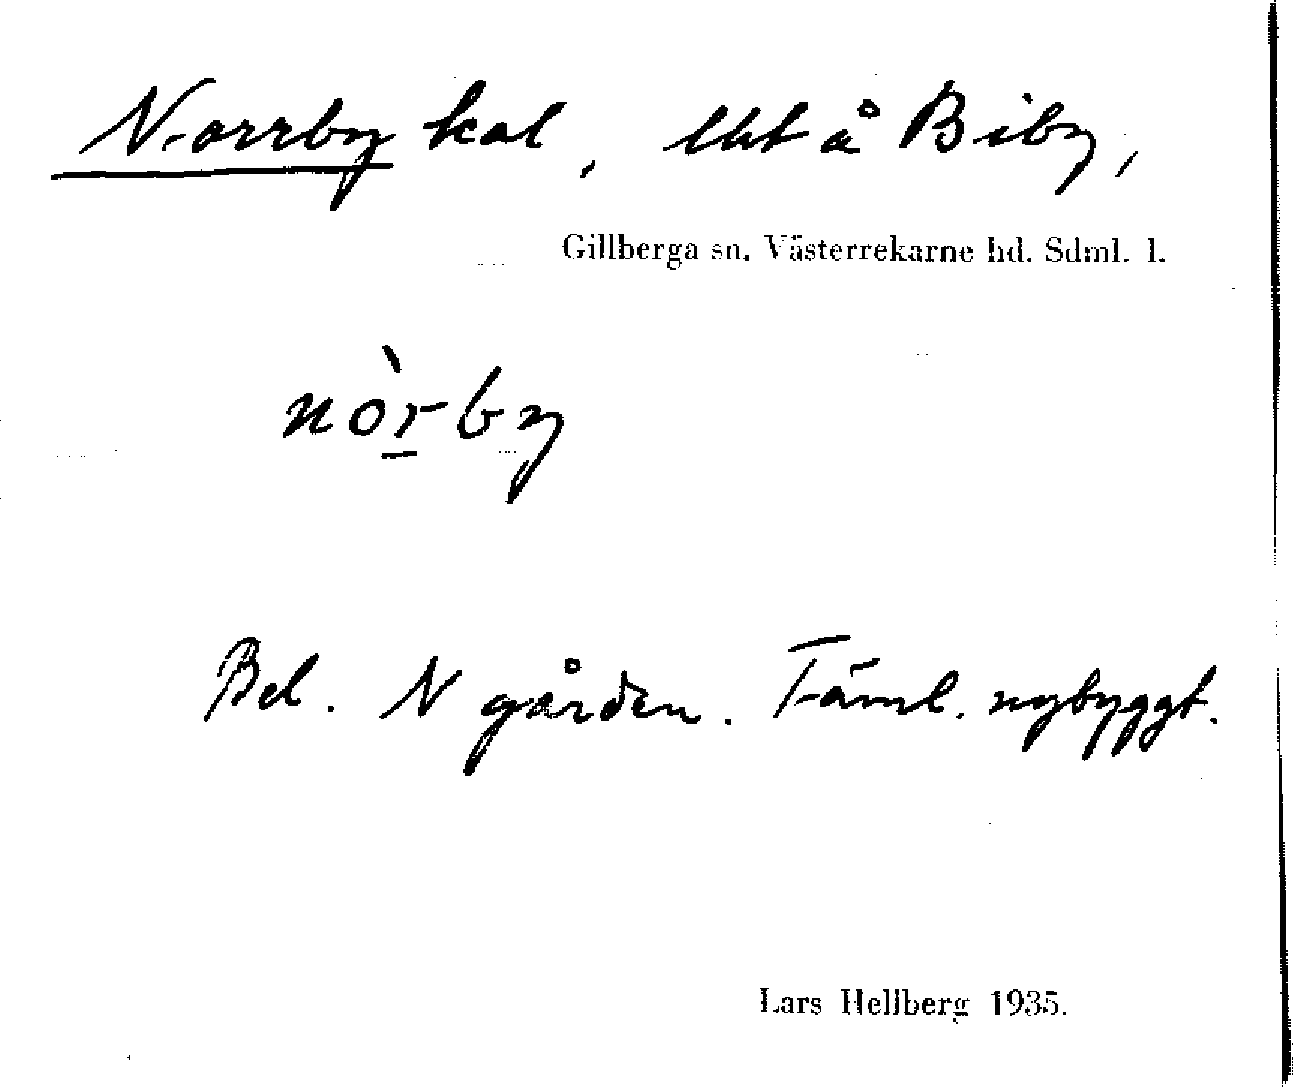 Norrby kal, lht å Biby,
Gillberga sn. Västerrekarne hd. Sdml. l.
nòr̲by
Bel. N gården. Täml. nybyggt.
Lars Hellberg 1935.